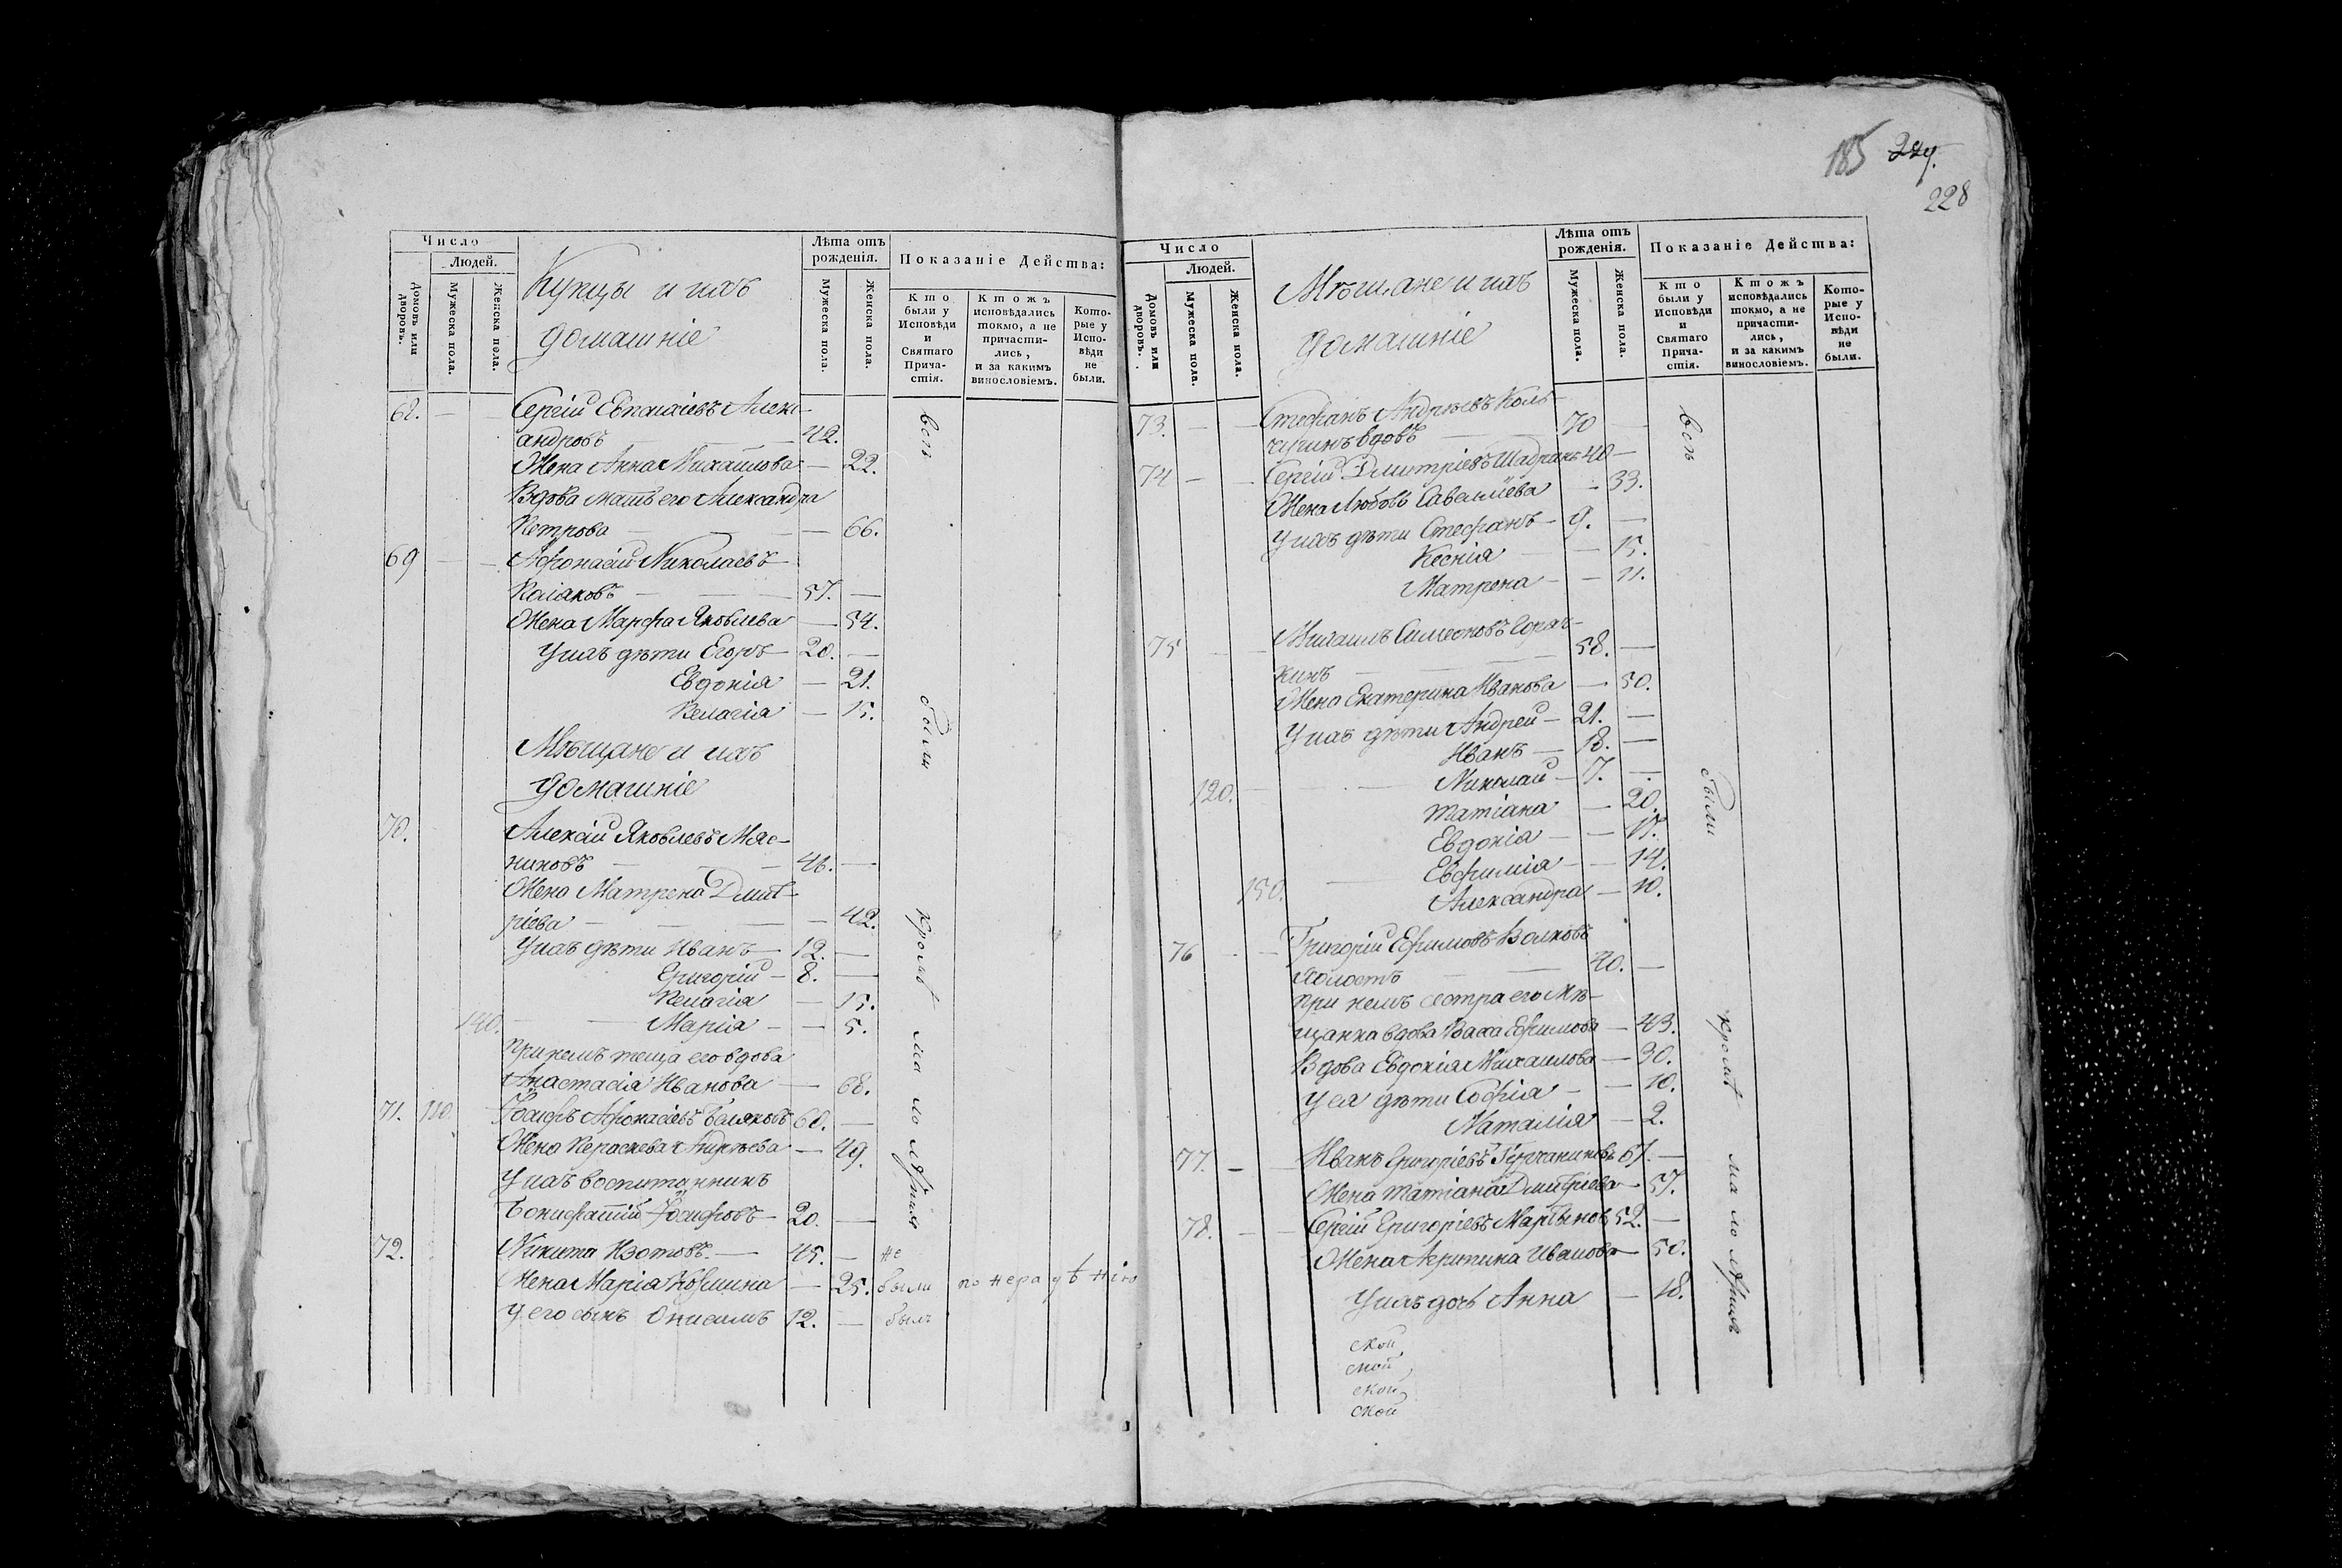 Число
Людей.
Домовъ или дворовъ.
Мужеска пола.
Женска пола.
Купцы и ихъ
домашніе
Лѣта отъ рожденія.
Мужеска пола.
Женска пола.
Показаніе Действа:
Кто были у Исповѣди и Святаго Причастія.
Ктожъ исповѣдались токмо, а не причастились, и за какимъ винословіемъ.
Которые у Исповѣди не были.
68. — — Сергій Евпсихіевъ Алекс-
андровъ — — 42.
Жена Анна Михайлова — 22.
Вдова мать его Александра
Петрова — — — 66.
69 — — Афонасій Николаевъ
— — 57. —
Жена Марфа Яковлева — 54.
У ихъ дѣти Егоръ — 20. —
Евдокія — 21.
Пелагія — 15.
Мѣщане и ихъ
домашніе
70. Алексій Яковлевъ Мяс-
никовъ — — 46. —
Жена Матрена Дмит-
ріева — — — 42.
У ихъ дѣти Иванъ — 12. —
Григорій — 8. —
Пелагія — 15.
140. — — Марія — — 5.
При немъ теща его вдова
Анастасія Иванова — 68.
71. 110. Іосифъ Афонасіевъ Беляковъ 60. —
Жена Параскева Андрѣева — 49.
У ихъ воспитанникъ
Бонифатій Іосифовъ — 20. —
72. Никита Изотовъ — 45. — не
Жена Марія Козмина — 25. были по нерадѣнію
У его сынъ Онисимъ 12. — былъ
всѣ
были
кромѣ
малолѣтныя
185 229.
228
Число
Людей.
Домовъ или дворовъ.
Мужеска пола.
Женска пола.
Мѣщане и ихъ
домашніе
Лѣта отъ рожденія.
Мужеска пола.
Женска пола.
Показаніе Действа:
Кто были у Исповѣди и Святаго Причастія.
Ктожъ исповѣдались токмо, а не причастились, и за какимъ винословіемъ.
Которые у Исповѣди не были.
73. — — Стефанъ Андрѣевъ Коль-
чугинъ вдовъ — 70 —
74 — — Сергій Дмитріевъ Шадринъ 40 —
Жена Любовь Савельіева — 33.
У ихъ дѣти Стефанъ — 9. —
Ксенія — — 15.
Матрона — — 11.
75 — — Михаилъ Симеоновъ Горяч-
кинъ — — 58. —
Жена Екатерина Иванова — 50.
У ихъ дѣти Андрей — 21. —
Иванъ — 18. —
120. — — Николай — 7. —
Татіана — 20.
Евдокія — — 17.
Евфимія — — 14.
150. — Александра — 10.
76 — — Григорій Ефимовъ Волковъ
холостъ — — 40. —
При немъ сестра его мѣ-
щанка вдова Васса Ефимова — 43.
Вдова Евдокія Михаилова — 30.
У ея дѣти Софія — — 10.
Наталія — 2.
77. — — Иванъ Григоріевъ 67. —
Жена Татіана Дмитріева — 57.
78. — — Сергій Григоріевъ Мартыновъ 52. —
Жена Акрипина Иванова — 50.
У ихъ дочь Анна — 18.
ской
ской
ской
ской
всѣ
были
кромѣ
малолѣтныя